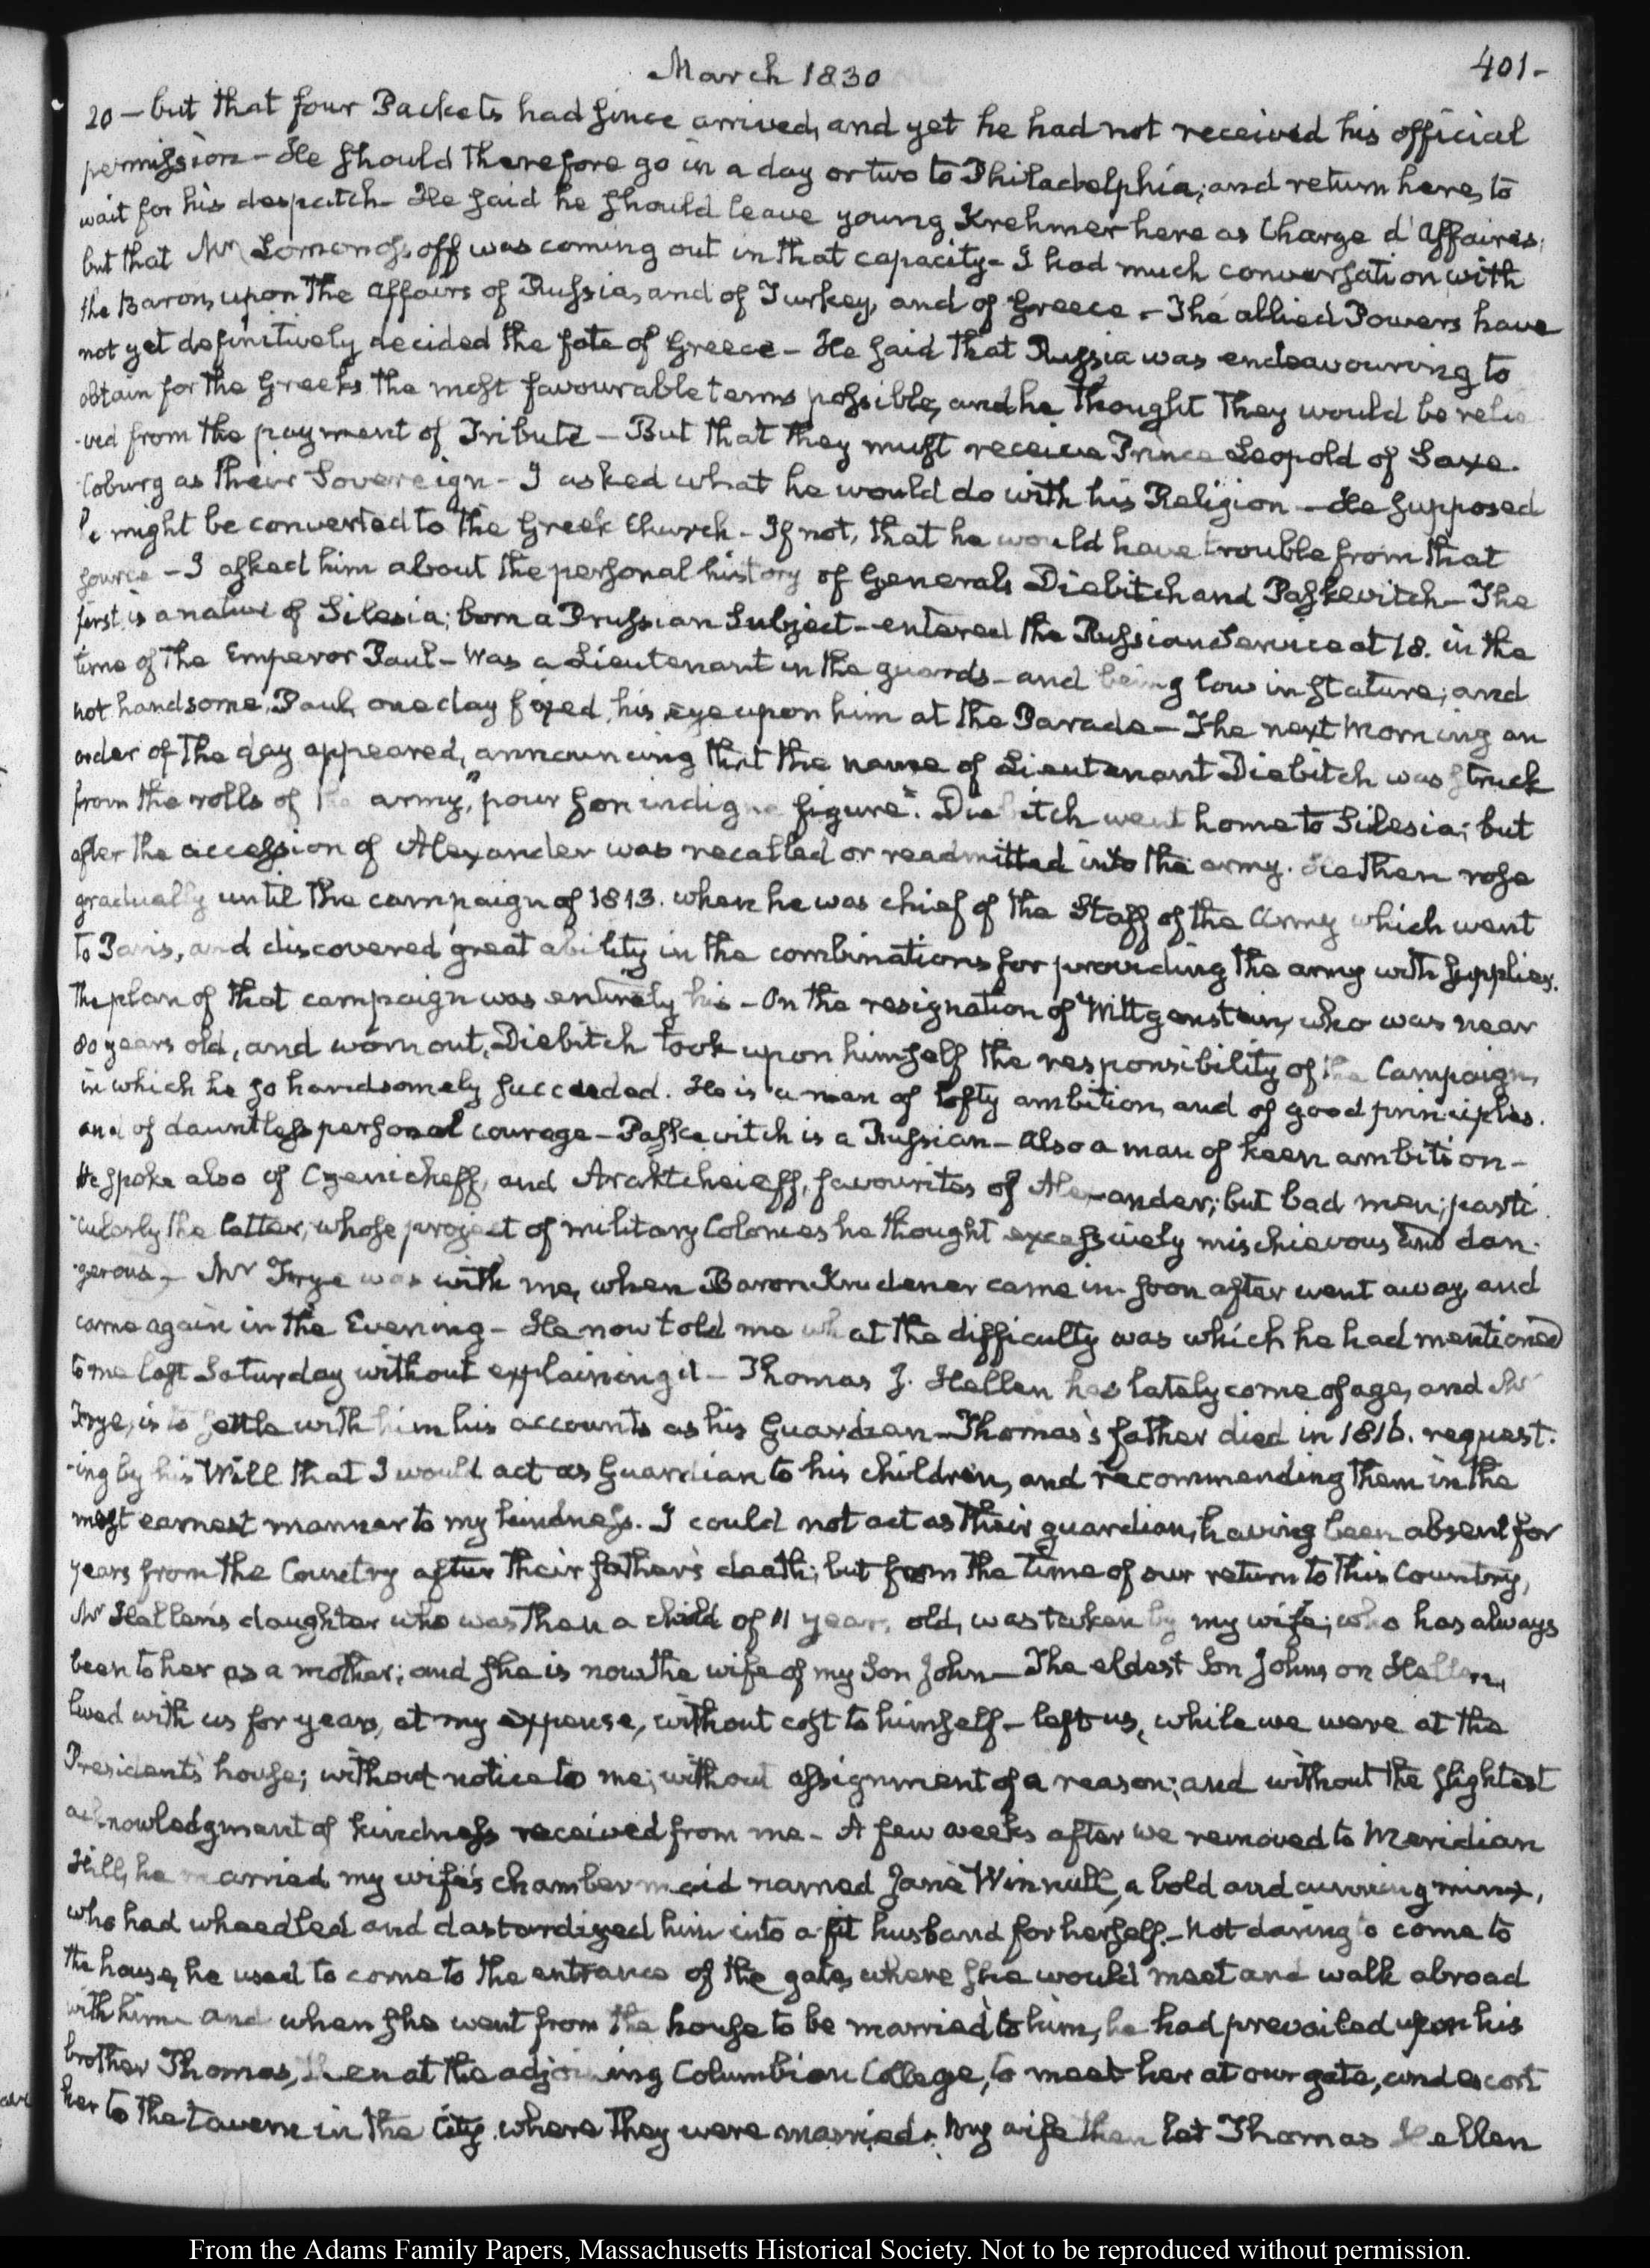 March 1830
401-
20 — but that four Packets had since arrived, and yet he had not received his official
permission — He should therefore go in a day or two to Philadelphia; and return here, to
wait for his despatch — He said he should leave young Krehmer here as Charge d'Affaires;
but that Mr Lomonossoff was coming out in that capacity — I had much conversation with
the Baron, upon the affairs of Russia, and of Turkey, and of Greece. — The allied Powers have
not yet definitively decided the fate of Greece — He said that Russia was endeavouring to
obtain for the Greeks the most favourable terms possible, and he thought they would be relie
-ved from the payment of Tribute — But that they must receive Prince Leopold of Saxe-
Coburg as their Sovereign — I asked what he would do with his Religion — He supposed
he might be converted to the Greek Church — If not, that he would have trouble from that
source — I asked him about the personal history of Generals Diebitch and Paskevitch — The
first is a native of Silesia; born a Prussian Subject — entered the Russian Service at 18. in the
time of the Emperor Paul — Was a Lieutenant in the guards — and being low in stature, and
not handsome, Paul, one day fixed his eye upon him at the Parade — The next morning an
order of the day appeared, announcing that the name of Lieutenant Diebitch was struck
from the rolls of the army, "pour son indigne figure". Diebitch went home to Silesia; but
after the accession of Alexander was recalled or readmitted into the army. He then rose
gradually until the campaign of 1813. when he was chief of the Staff of the Army which went
to Paris, and discovered great ability in the combinations for providing the army with supplies.
The plan of that campaign was entirely his — On the resignation of Wittgenstein, who was near
80 years old, and worn out, Diebitch took upon himself the responsibility of the Campaign,
in which he so handsomely succeeded. He is a man of lofty ambition, and of good principles.
and of dauntless personal courage — Paskevitch is a Russian — Also a man of keen ambition —
He spoke also of Czernicheff, and Araktcheieff, favourites of Alexander; but bad men; parti
-cularly the latter, whose project of military Colonies he thought excessively mischievous and dan-
-gerous — Mr Frye was with me, when Baron Krudener came in. soon after went away, and
came again in the Evening — He now told me what the difficulty was which he had mentioned
to me last Saturday without explaining it — Thomas J. Hellen has lately come of age, and Mr
Frye, is to settle with him his accounts as his Guardian — Thomas's father died in 1816. request-
-ing by his Will that I would act as Guardian to his children, and recommending them in the
most earnest manner to my kindness. I could not act as their guardian, having been absent for
years from the Country after their father's death; but from the time of our return to this Country,
Mr Hellen's daughter who was then a child of 11 years old, was taken by my wife; who has always
been to her as a mother; and she is now the wife of my Son John — The eldest Son Johnson Hellen,
lived with us for years, at my expense, without cost to himself — left us, while we were at the
President's house; without notice to me; without assignment of a reason; and without the slightest
acknowledgment of kindness received from me — A few weeks after we removed to Meridian
Hill, he married my wife's chambermaid named Jane Winnull, a bold and cunning minx,
who had wheedled and dastardized him into a fit husband for herself. — Not daring to come to
the house, he used to come to the entrance of the gate, where she would meet and walk abroad
with him and when she went from the house to be married to him, he had prevailed upon his
brother Thomas, then at the adjoining Columbian College, to meet her at our gate, and escort
her to the tavern in the City where they were married. My wife then let Thomas Hellen
From the Adams Family Papers, Massachusetts Historical Society. Not to be reproduced without permission.